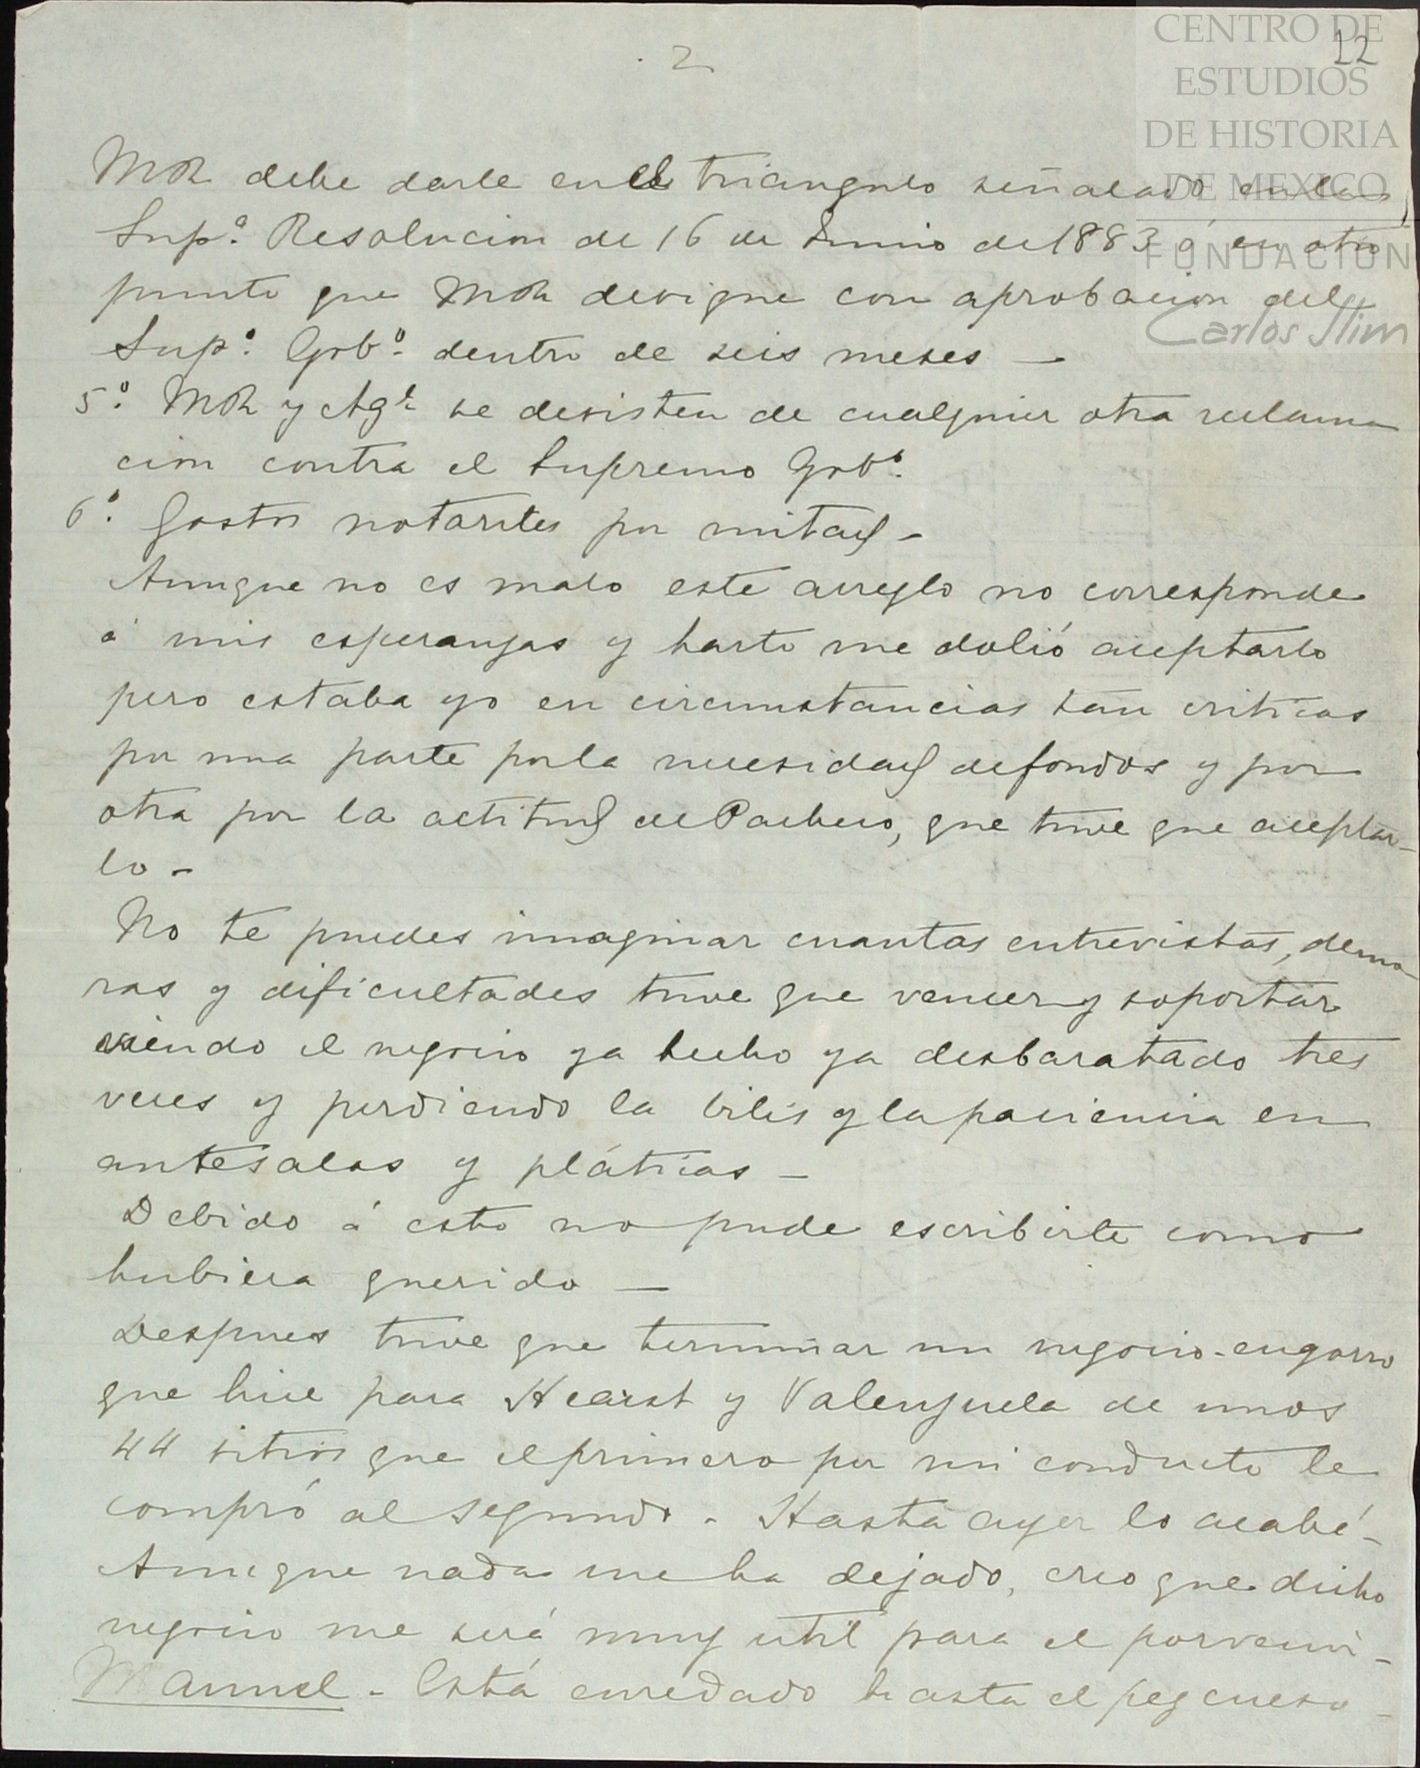 2
12
CENTRO DE
ESTUDIOS
DE HISTORIA
DE MEXICO
FUNDACION
Carlos Slim
debe darle en el triangulo señalado en la
Sup.ª Resolucion de 16 de Junio de 1883 ó en otro
punto que designe con aprobacion del
Sup.º Gobº. dentro de seis meses —
5º. y Agº se desisten de cualquier otra reclama
cion contra el Supremo Gobº.
6º. Gastos notariles por mitad -
Aunque no es malo este arreglo no corresponde
á mis esperanzas y harto me dolió aceptarlo
pero estaba yo en circunstancias tan criticas
por una parte por la necesidad de fondos y por
otra por la actitud de Pacheco, que tuve que aceptar-
lo -
No te puedes imaginar cuantas entrevistas, demo
ras y dificultades tuve que vencer y soportar
viendo el negocio ya hecho ya desbaratado tres
veces y perdiendo la bilis y la paciencia en
antesalas y pláticas —
Debido á esto no pude escribirte como
hubiera querido —
Despues tuve que terminar un negocio-engorro
que hice para Hearst y Valenzuela de unos
44 sitios que el primero por mi conducto le
compró al segundo - Hasta ayer lo acabé -
Aunque nada me ha dejado, creo que dicho
negocio me será muy util para el porvenir -
Manuel - Está enredado hasta el pezcueso -